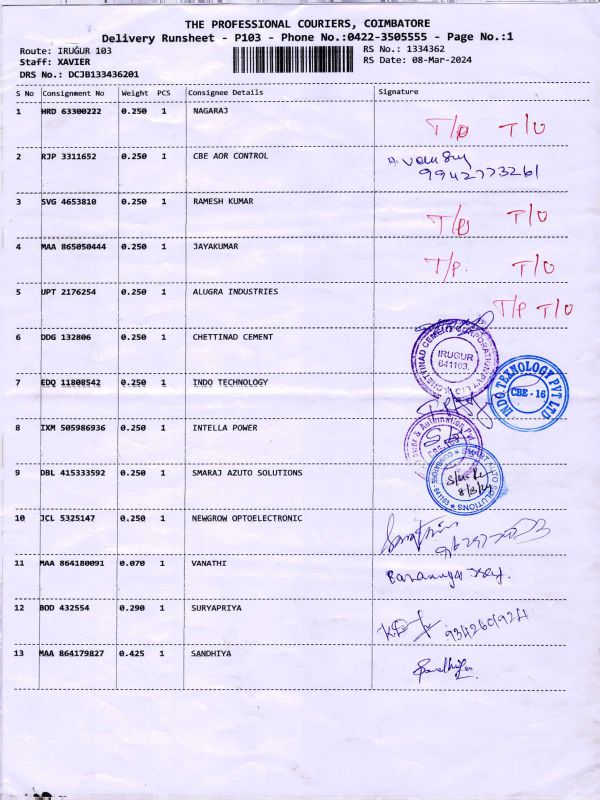 THE PROFESSIONAL COURIERS, COIMBATORE
Delivery Runsheet - P103 - Phone No.:0422-3505555 - Page No.:1
Route: IRUGUR 103
RS No.: 1334362
Staff: XAVIER
RS Date: 08-Mar-2024
DRS No.: DCJB133436201
S No Consignment No Weight PCS Consignee Details Signature
1 HRD 63300222 0.250 1 NAGARAJ
T/O T/O
2 RJP 3311652 0.250 1 CBE AOR CONTROL
9942773261
3 SVG 4653810 0.250 1 RAMESH KUMAR
T/O T/O
4 MAA 865050444 0.250 1 JAYAKUMAR
T/P. T/O
5 UPT 2176254 0.250 1 ALUGRA INDUSTRIES
T/P T/O
6 DDG 132806 0.250 1 CHETTINAD CEMENT
CHETTINAD CEMENT CORPORATION PVT LTD
IRUGUR
641103.
7 EDQ 11808542 0.250 1 INDO TECHNOLOGY
INDO TEKNOLOGY PVT LTD
CBE - 16
8 IXM 505986936 0.250 1 INTELLA POWER
Power & Automation Pvt
9 DBL 415333592 0.250 1 SMARAJ AZUTO SOLUTIONS
SMART AUTO SOLUTIONS
8/3/24
10 JCL 5325147 0.250 1 NEWGROW OPTOELECTRONIC
11 MAA 864180091 0.070 1 VANATHI
12 BOD 432554 0.290 1 SURYAPRIYA
9342609924
13 MAA 864179827 0.425 1 SANDHIYA
Sandhiya